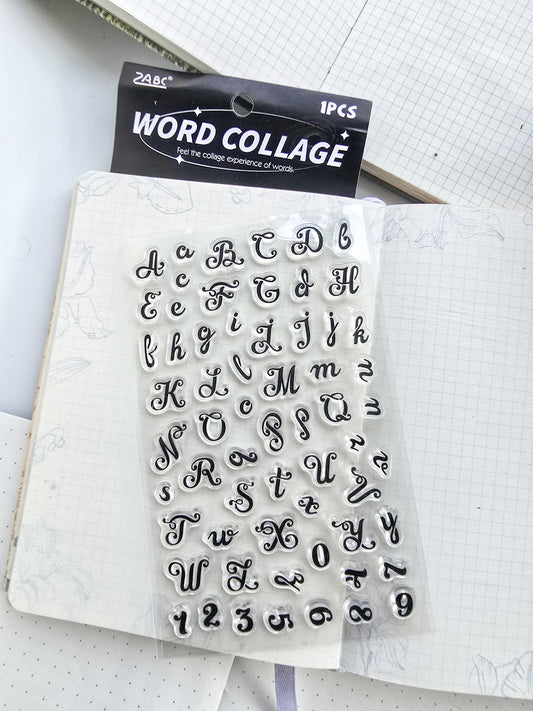 ZABC®
1PCS
WORD COLLAGE
Feel the collage experience of words.
A a B C D b
E c e F G d H
f h g i I J j k
K L l M m n
N O o P p Q n
s R a S t U r v
T w X x Y y V
W Z z 0 4 7
1 2 3 5 6 8 9